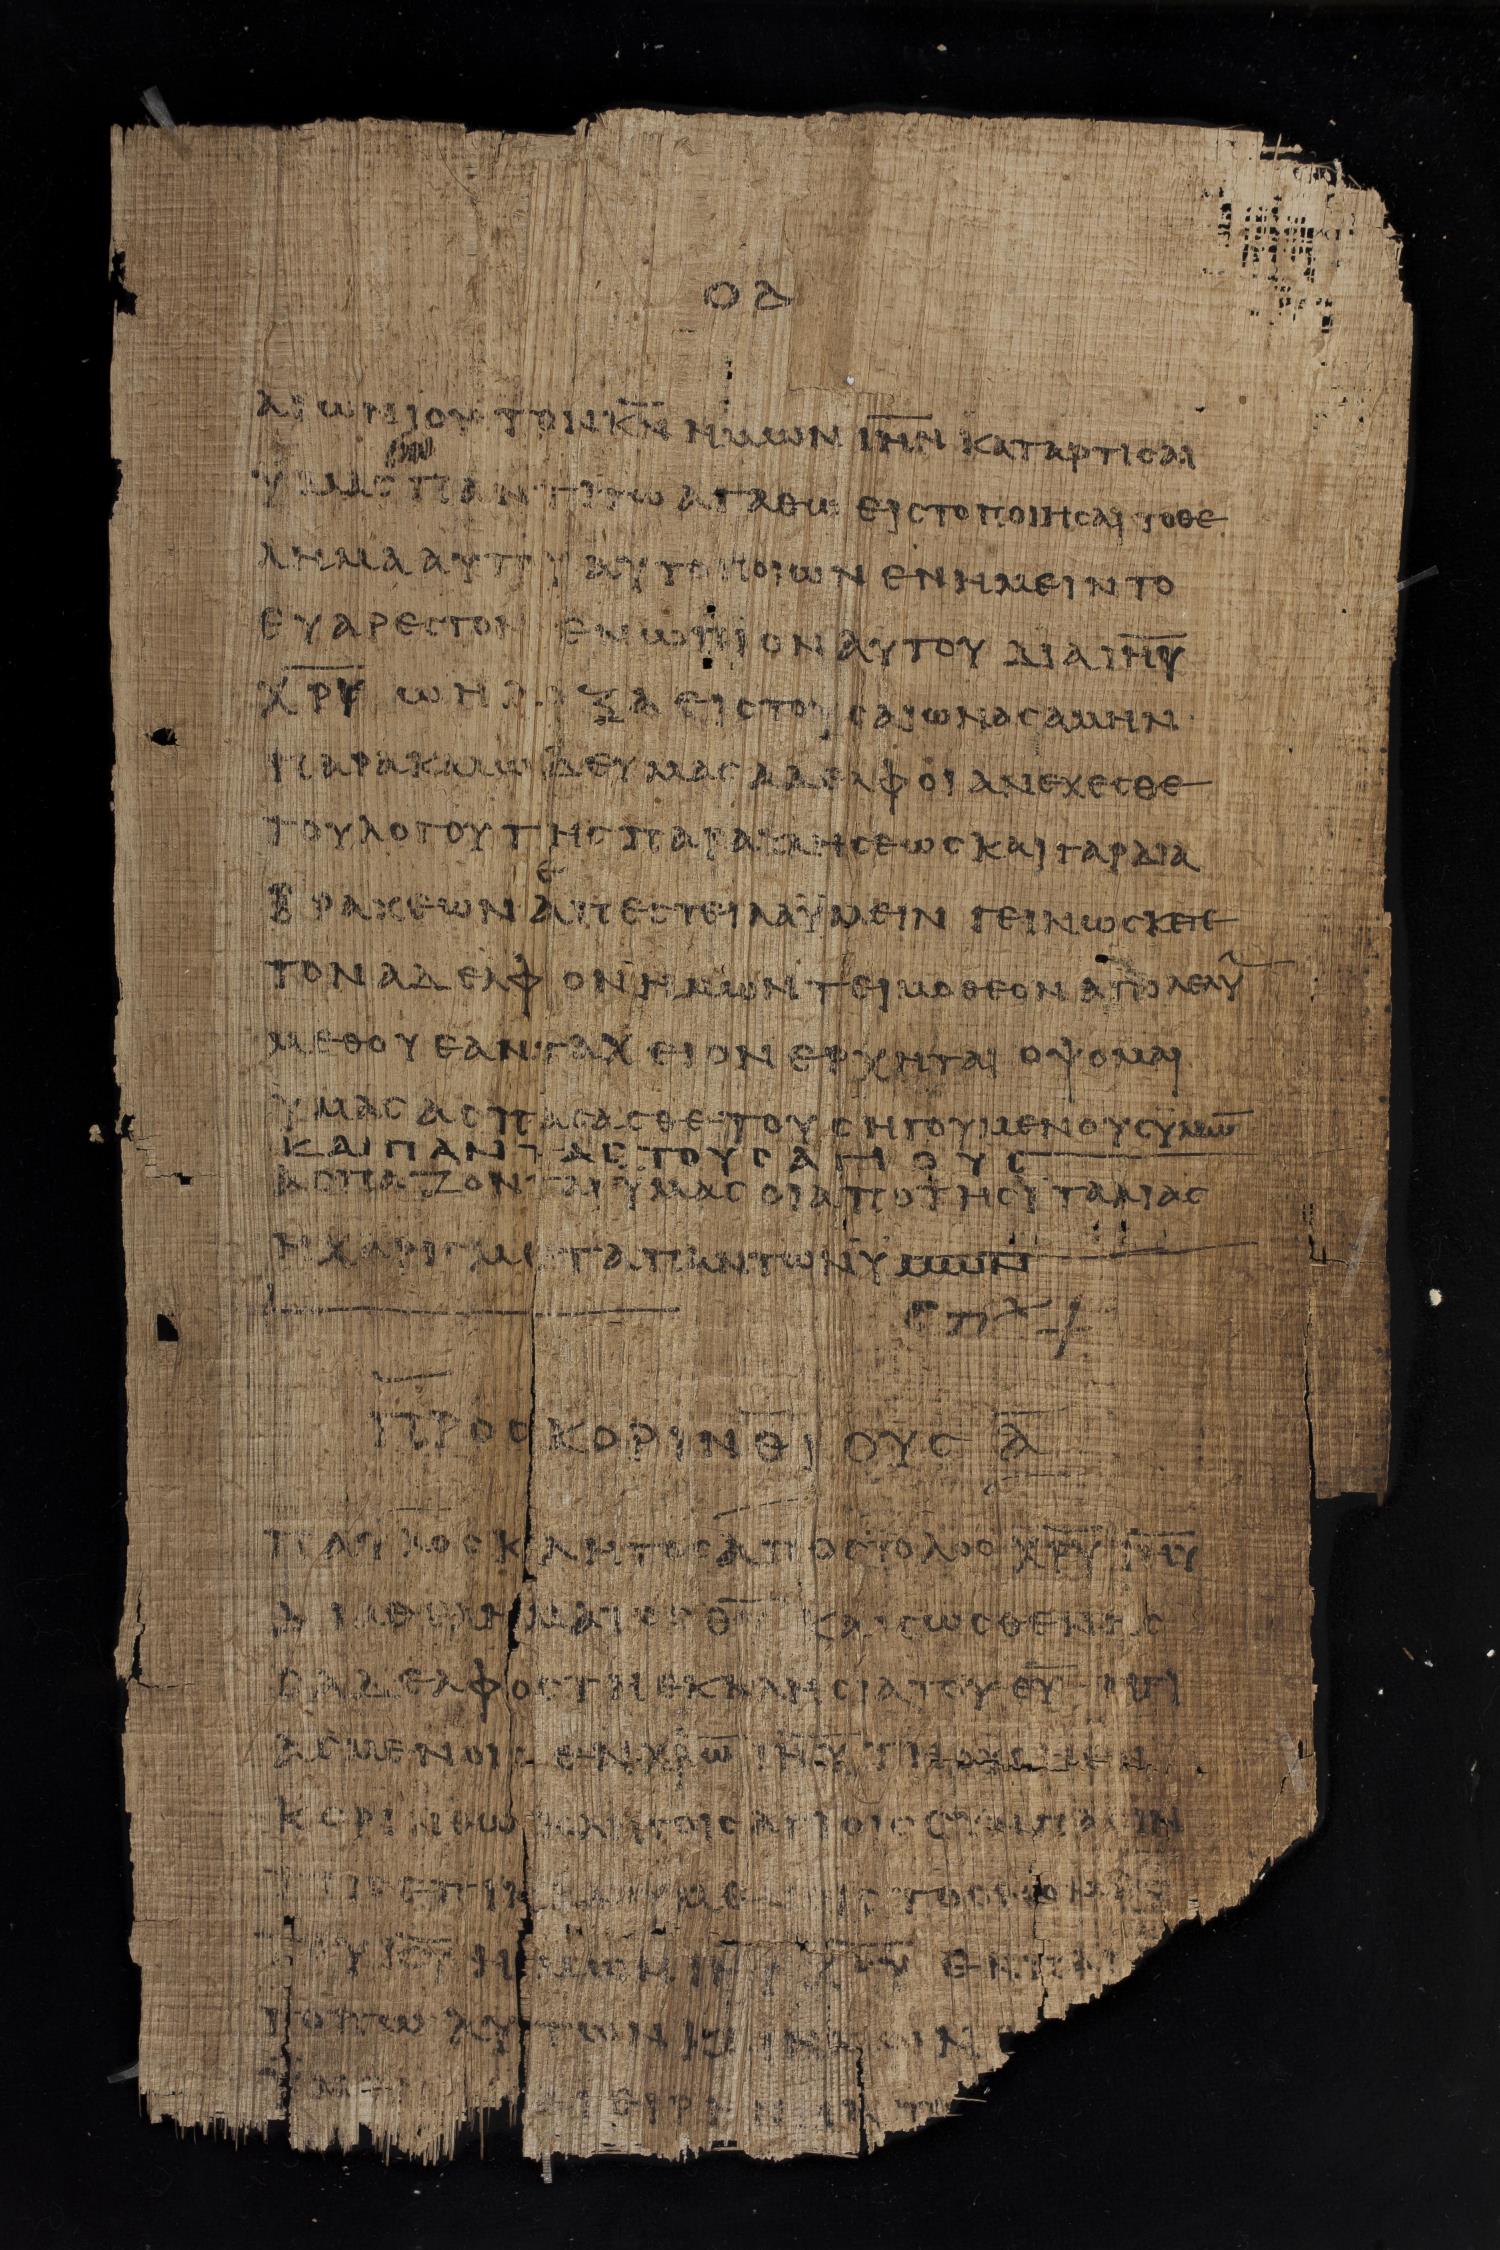 ΟΔ
ΑΙΩΝΙΟΥ ΤΟΝ Κ̅Ν̅ ΗΜΩΝ Ι̅Η̅Ν̅ ΚΑΤΑΡΤΙΣΑΙ
ΥΜΑΣ ΠΑΝΤΙ ΤΩ ΑΓΑΘΩ ΕΙΣ ΤΟ ΠΟΙΗΣΑΙ ΤΟ ΘΕ
ΛΗΜΑ ΑΥΤΟΥ ΑΥΤΟ ΠΟΙΩΝ ΕΝ ΗΜΕΙΝ ΤΟ
ΕΥΑΡΕΣΤΟΝ ΕΝΩΠΙΟΝ ΑΥΤΟΥ ΔΙΑ Ι̅Η̅Υ̅
Χ̅Ρ̅Υ̅ Ω Η ΔΟΞΑ ΕΙΣ ΤΟΥΣ ΑΙΩΝΑΣ ΑΜΗΝ
ΠΑΡΑΚΑΛΩ ΔΕ ΥΜΑΣ ΑΔΕΛΦΟΙ ΑΝΕΧΕΣΘΕ
ΤΟΥ ΛΟΓΟΥ ΤΗΣ ΠΑΡΑΚΛΗΣΕΩΣ ΚΑΙ ΓΑΡ ΔΙΑ
ΒΡΑΧΕΩΝ ΑΠΕΣΤΕΙΛΑ ΫΜΕΙΝ ΓΕΙΝΩΣΚΕΤΕ
ΤΟΝ ΑΔΕΛΦΟΝ ΗΜΩΝ ΤΕΙΜΟΘΕΟΝ ΑΠΟΛΕΛΥ
ΜΕΘΟΥ ΕΑΝ ΤΑΧΕΙΟΝ ΕΡΧΗΤΑΙ ΟΨΟΜΑΙ
ΥΜΑΣ ΑΣΠΑΣΑΣΘΕ ΤΟΥΣ ΗΓΟΥΜΕΝΟΥΣ ΫΜΩ̅
ΚΑΙ ΠΑΝΤΑΣ ΤΟΥΣ ΑΓΙΟΥΣ
ΑΣΠΑΖΟΝΤΑΙ ΫΜΑΣ ΟΙ ΑΠΟ ΤΗΣ ΪΤΑΛΙΑΣ
Η ΧΑΡΙΣ ΜΕΤΑ ΠΑΝΤΩΝ ΫΜΩΝ
ΠΡΟΣ ΚΟΡΙΝΘΙΟΥΣ Α̅
ΠΑΥΛΟΣ ΚΛΗΤΟΣ ΑΠΟΣΤΟΛΟΣ Χ̅Ρ̅Υ̅ Ι̅Η̅Υ̅
ΔΙΑ ΘΕΛΗΜΑΤΟΣ Θ̅Υ̅ ΚΑΙ ΣΩΣΘΕΝΗΣ
Ο ΑΔΕΛΦΟΣ ΤΗ ΕΚΚΛΗΣΙΑ ΤΟΥ Θ̅Υ̅ ΗΓΙ
ΑΣΜΕΝΟΙΣ ΕΝ Χ̅Ρ̅Ω̅ Ι̅Η̅Υ̅ ΤΗ ΟΥΣΗ ΕΝ
ΚΟΡΙΝΘΩ ΚΛΗΤΟΙΣ ΑΓΙΟΙΣ ΣΥΝ ΠΑΣΙΝ
ΤΟΙΣ ΕΠΙΚΑΛΟΥΜΕΝΟΙΣ ΤΟ ΟΝΟΜΑ
ΤΟΥ Κ̅Υ̅ ΗΜΩΝ Ι̅Η̅Υ̅ Χ̅Ρ̅Υ̅ ΕΝ ΠΑΝΤΙ
ΤΟΠΩ ΑΥΤΩΝ ΚΑΙ ΗΜΩΝ